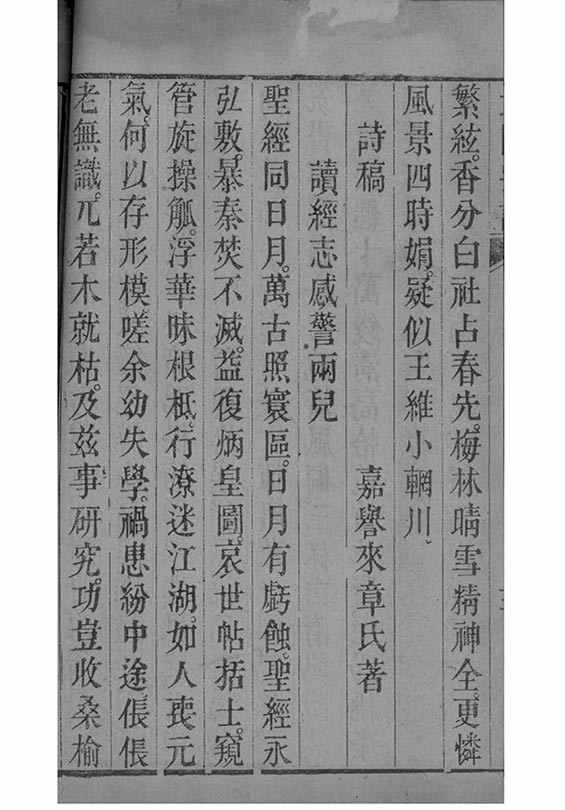 繁絃。香分白社占春先。梅林晴雪精神全。更憐
風景四時娟。疑似王維小輞川。
詩稿 嘉譽來章氏著
讀經志感警兩兒
聖經同日月。萬古照寰區。日月有虧蝕。聖經永
弘敷。暴秦焚不滅。益復炳皇圖。哀世帖括士。窺
管旋操觚。浮華昧根柢。行潦迷江湖。如人喪元
氣。何以存形模。嗟余幼失學。禍患紛中途。倀倀
老無識。兀若木就枯。及茲事研究。功豈收桑榆